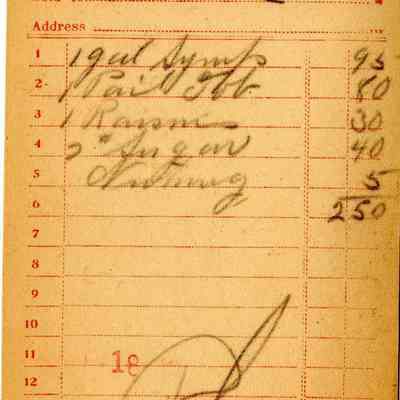 Address
1 1 gal Syrup 95
2 1 Pail 80
3 1 Raisins 30
4 Sugar 40
5 Nutmeg 5
6 250
7
8
9
10
11 18
12